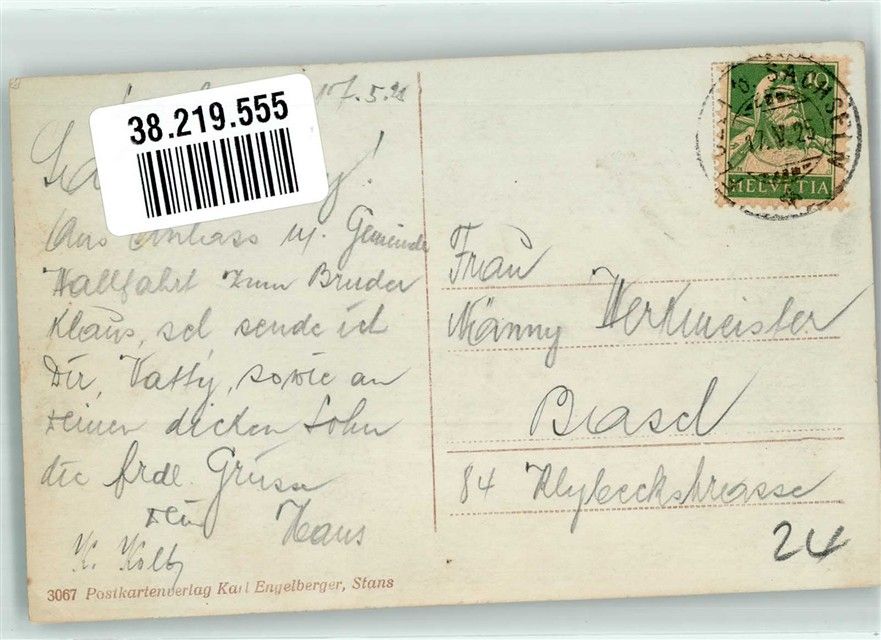 38.219.555
17.5.2
Aus Anlass uf. Gemeinde
Wallfahrt zum Bruder
Klaus, sel sende ich
Dir, Vatty, sowie an
deinen dicken Sohn
die frdl. Grüsse
Dein Hans
K. Kolb
3067 Postkartenverlag Karl Engelberger, Stans
SACHSELN
17.V.2
10
HELVETIA
Frau
Nänny Werkmeister
Basel
84 Klybeckstrasse
24